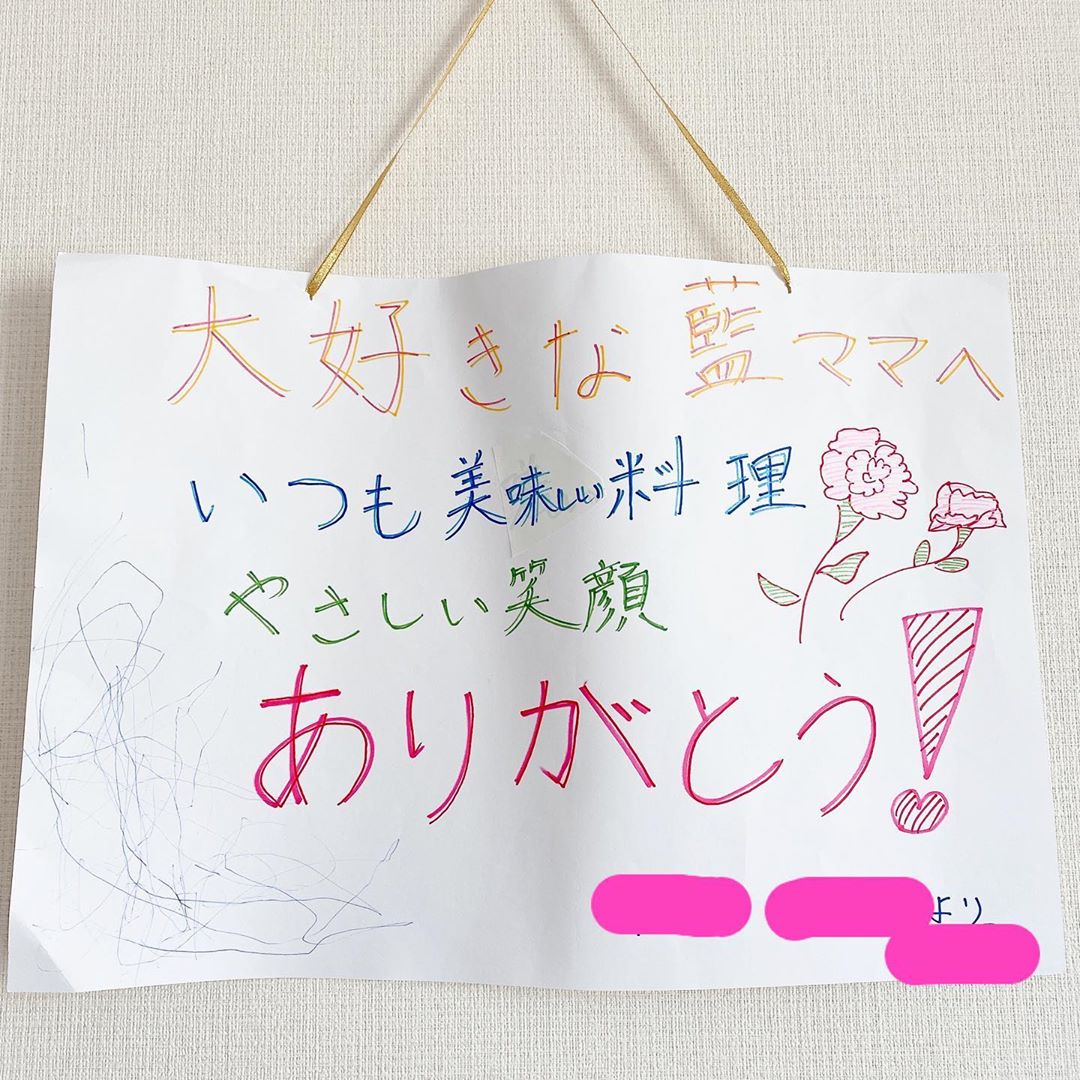 大好きな藍ママへ
いつも美味しい料理
やさしい笑顔
ありがとう!
より